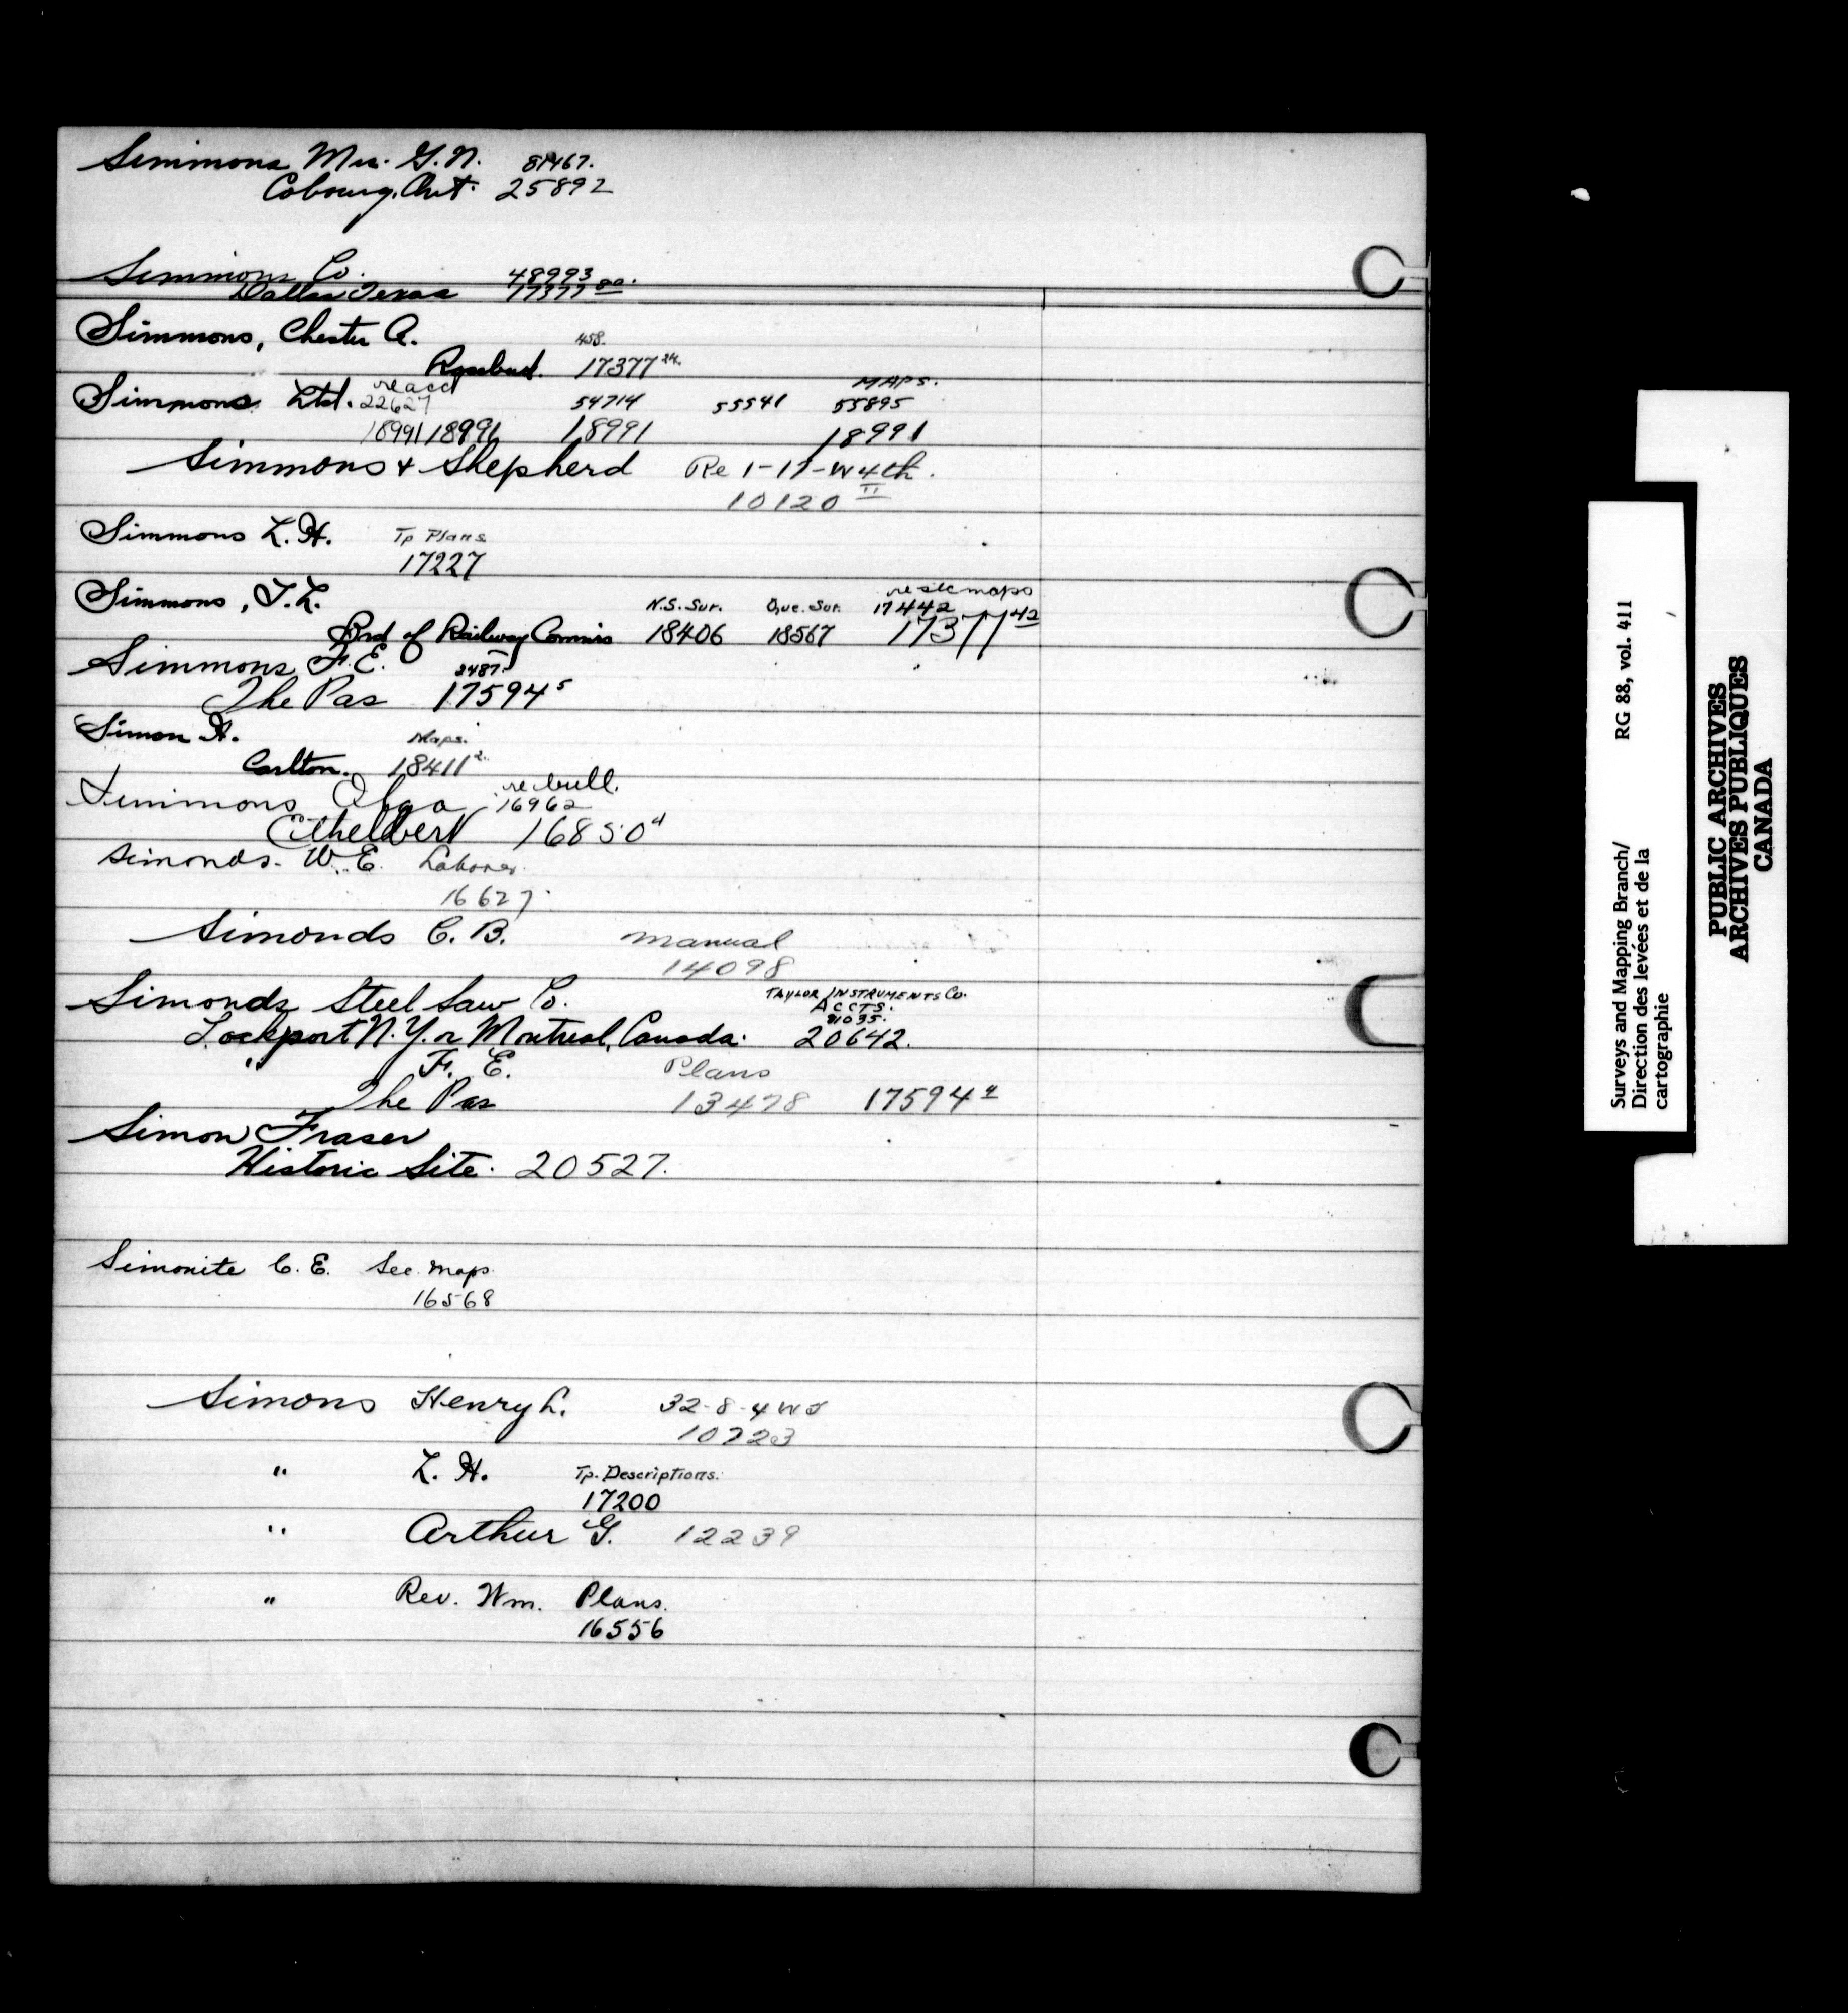 Simmons Mrs. G. N. 81467.
Cobourg, Ont. 25892
Simmons Co. 48993
Dallas Texas 17377
Simmons, Chester A. 458.
Rosebud. 17377 24.
re acct MAPS.
Simmons Ltd. 22627 54714 55541 55895
18991 18991 18991 18991
Simmons & Shepherd Re 1-17-W 4th.
10120 II
Simmons L. H. Tp Plans
17227
re sec maps
Simmons, T. L. N.S. Sur. Que. Sur. 17442
Brd of Railway Commrs 18406 18567 17377 42
Simmons F. E. 2487
The Pas 17594 5
Simon A. Maps.
Carlton. 18411 2.
re bull.
Simmons Olga 16962
Ethelbert 16850 4
Simonds. W. E. Laborer
16627.
Simonds C. B. Manual
14098
Simonds Steel Saw Co. TAYLOR INSTRUMENTS CO.
ACCTS.
91035.
Lockport N.Y. or Montreal, Canada. 20642.
" F. E. Plans
The Pas 13478 17594 4
Simon Fraser
Historic Site. 20527.
Simonite C. E. Sec. Maps
16568
Simons Henry L. 32-8-4 W
10723
" L. H. Tp. Descriptions.
17200
" Arthur G. 12239
" Rev. Wm. Plans.
16556
Surveys and Mapping Branch/ RG 88, vol. 411
Direction des levées et de la
cartographie
PUBLIC ARCHIVES
ARCHIVES PUBLIQUES
CANADA